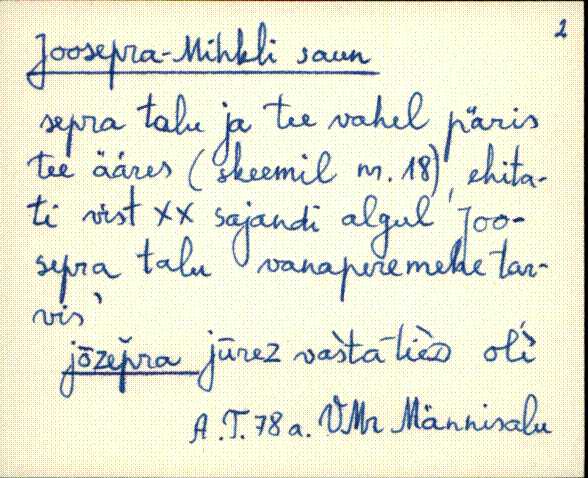 2
Joosepra-Mihkli saun
sepra talu ja tee vahel päris
tee ääres (skeemil nr. 18), ehita-
ti vist XX sajandi algul Joo-
sepra talu vanaperemehe tar-
vis
jōzepra jūrez
A.T. 78 a. VMr Männisalu